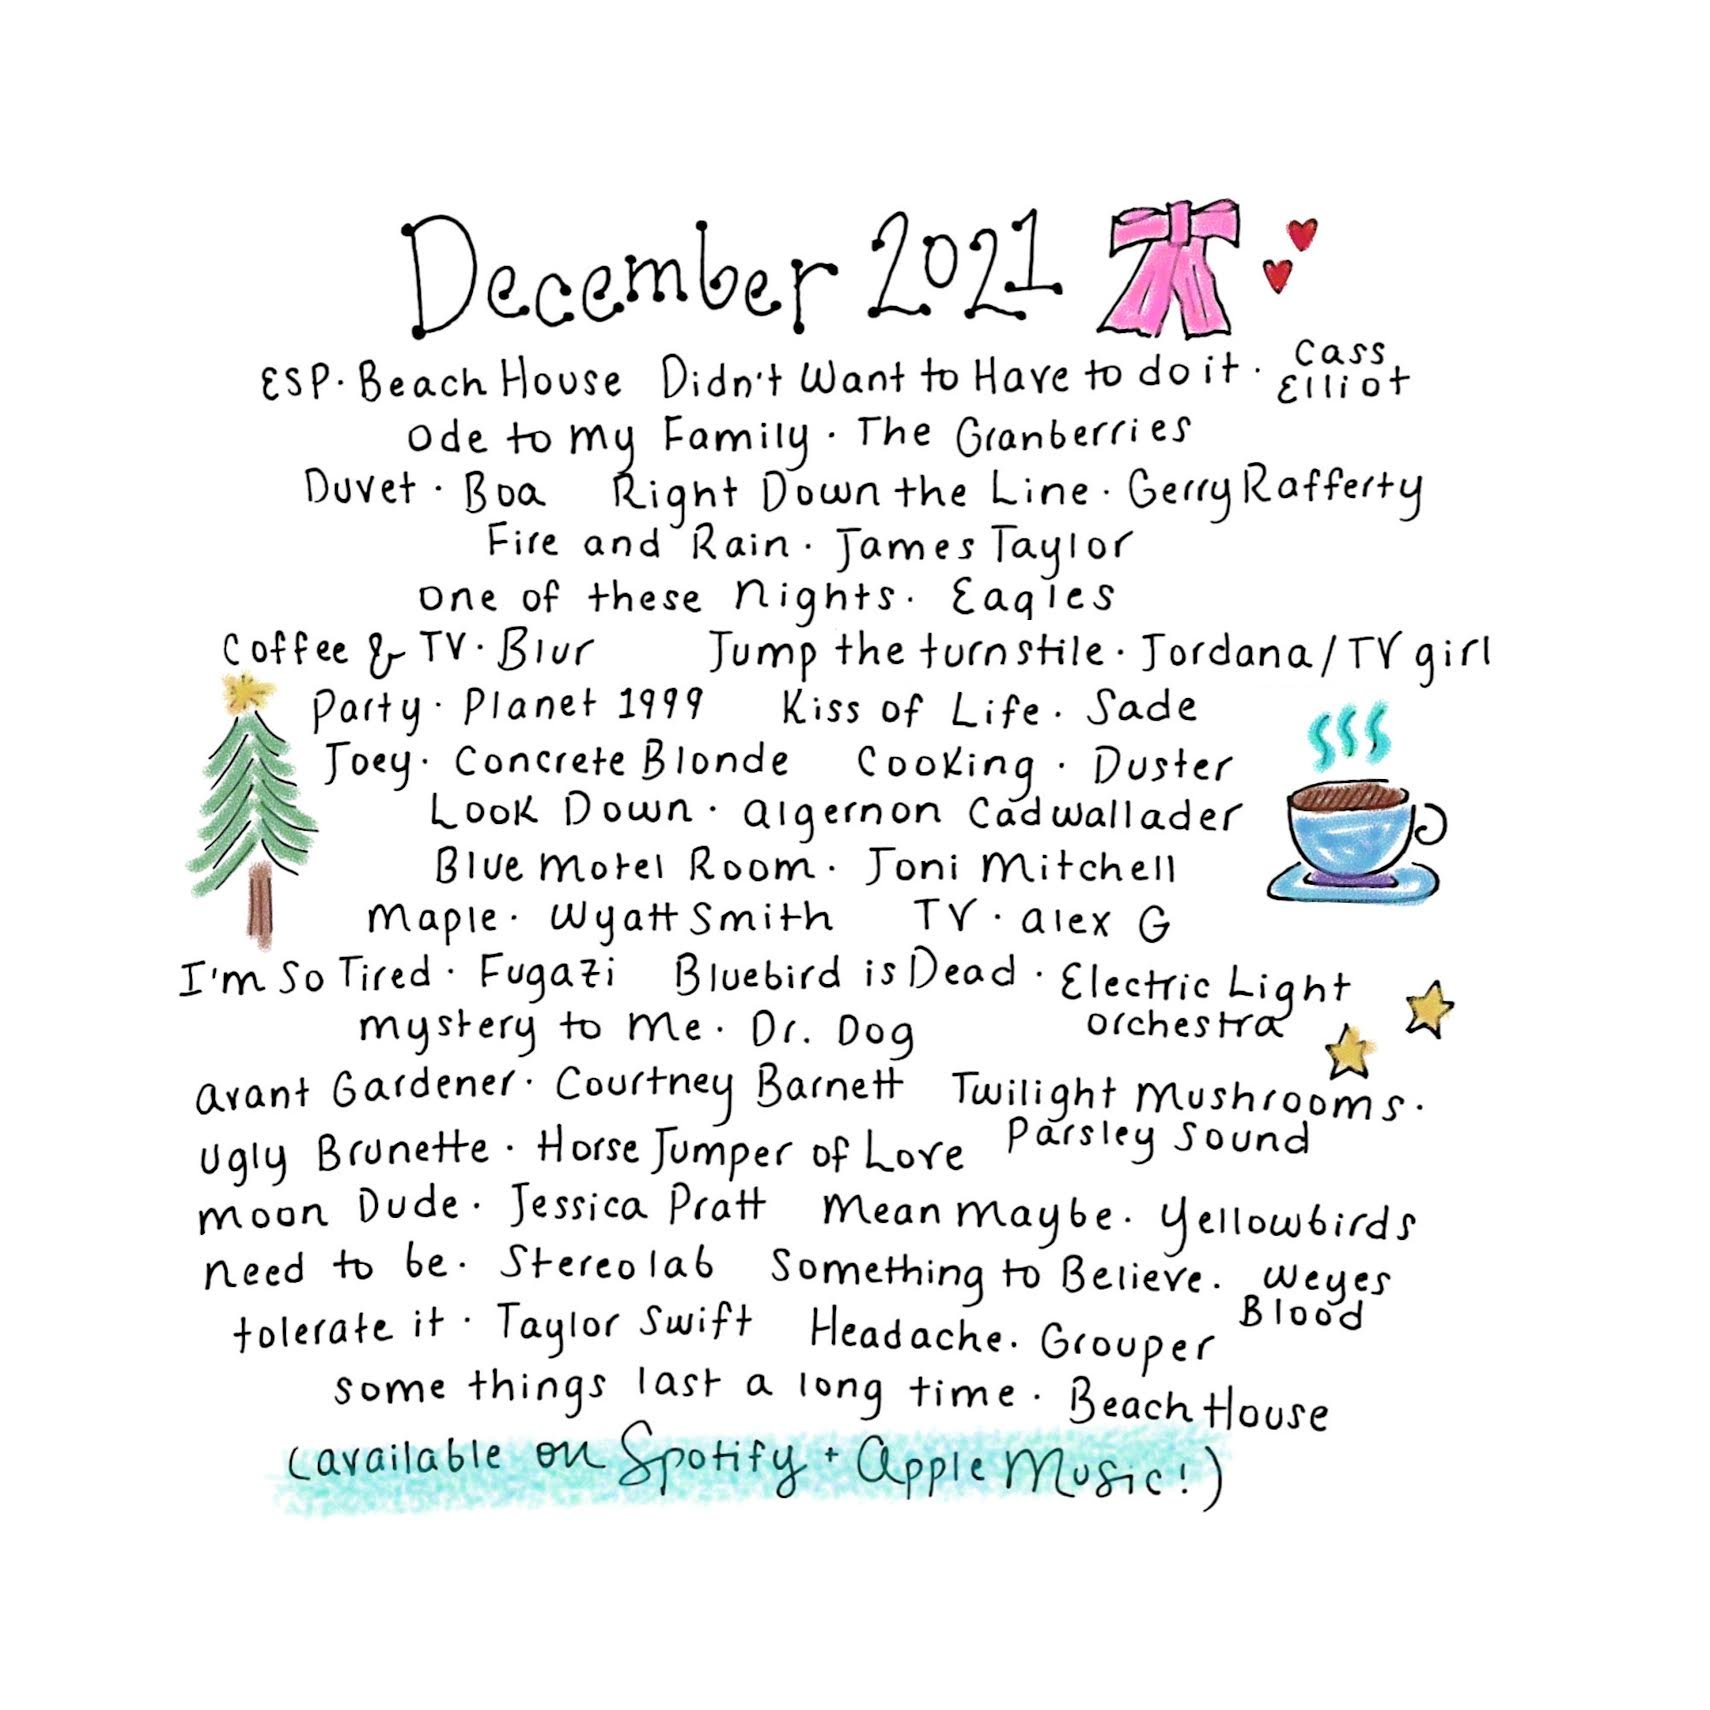 December 2021
ESP · Beach House Didn't Want to Have to do it · Cass Elliot
Ode to my Family · The Cranberries
Duvet · Boa Right Down the Line · Gerry Rafferty
Fire and Rain · James Taylor
one of these Nights · Eagles
Coffee & TV · Blur Jump the turnstile · Jordana/TV girl
Party · Planet 1999 Kiss of Life · Sade
Joey · Concrete Blonde Cooking · Duster
Look Down · Algernon Cadwallader
Blue Motel Room · Joni Mitchell
Maple · Wyatt Smith TV · Alex G
I'm So Tired · Fugazi Bluebird is Dead · Electric Light Orchestra
mystery to me · Dr. Dog
Avant Gardener · Courtney Barnett Twilight Mushrooms · Parsley Sound
Ugly Brunette · Horse Jumper of Love
Moon Dude · Jessica Pratt Mean Maybe · Yellowbirds
need to be · Stereolab Something to Believe · Weyes Blood
tolerate it · Taylor Swift Headache · Grouper
some things last a long time · Beach House
(available on Spotify + Apple Music!)